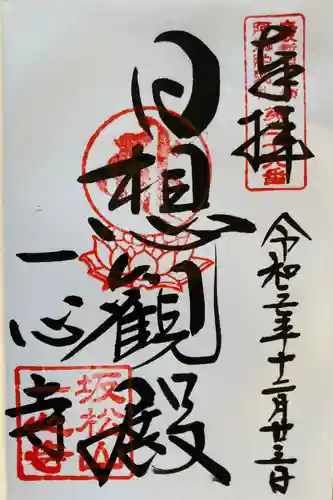 奉拝
令和三年十二月廿三日
日想観殿
一心寺
坂松山